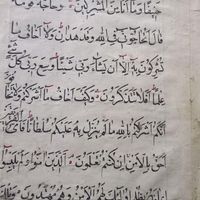 حَنِيفًا وَمَا أَنَا مِنَ الْمُشْرِكِينَ وَحَاجَّهُ قَوْمُهُ
قَالَ أَتُحَاجُّونِّي فِي اللَّهِ وَقَدْ هَدَانِ وَلَا أَخَافُ مَا
تُشْرِكُونَ بِهِ إِلَّا أَنْ يَشَاءَ رَبِّي شَيْئًا وَسِعَ رَبِّي كُلَّ شَيْءٍ
عِلْمًا أَفَلَا تَتَذَكَّرُونَ وَكَيْفَ أَخَافُ مَا أَشْرَكْتُمْ وَلَا تَخَافُونَ
أَنَّكُمْ أَشْرَكْتُمْ بِاللَّهِ مَا لَمْ يُنَزِّلْ بِهِ عَلَيْكُمْ سُلْطَانًا فَأَيُّ
أَحَقُّ بِالْأَمْنِ إِنْ كُنْتُمْ تَعْلَمُونَ الَّذِينَ آمَنُوا وَلَمْ يَلْبِسُوا
إِيمَانَهُمْ بِظُلْمٍ أُولَئِكَ لَهُمُ الْأَمْنُ وَهُمْ مُهْتَدُونَ وَتِلْكَ